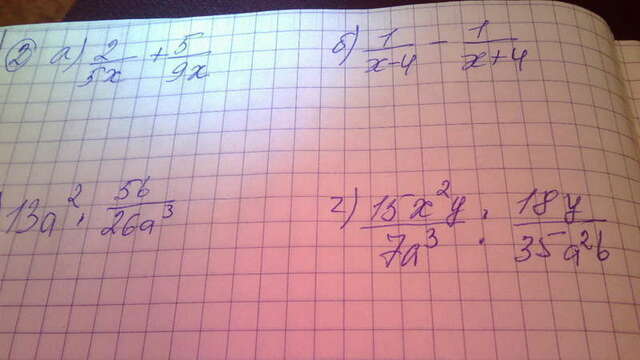 2) а) 2/5x + 5/9x б) 1/x-4 - 1/x+4
13a² · 5b/26a³ г) 15x²y/7a³ : 18y/35a²b